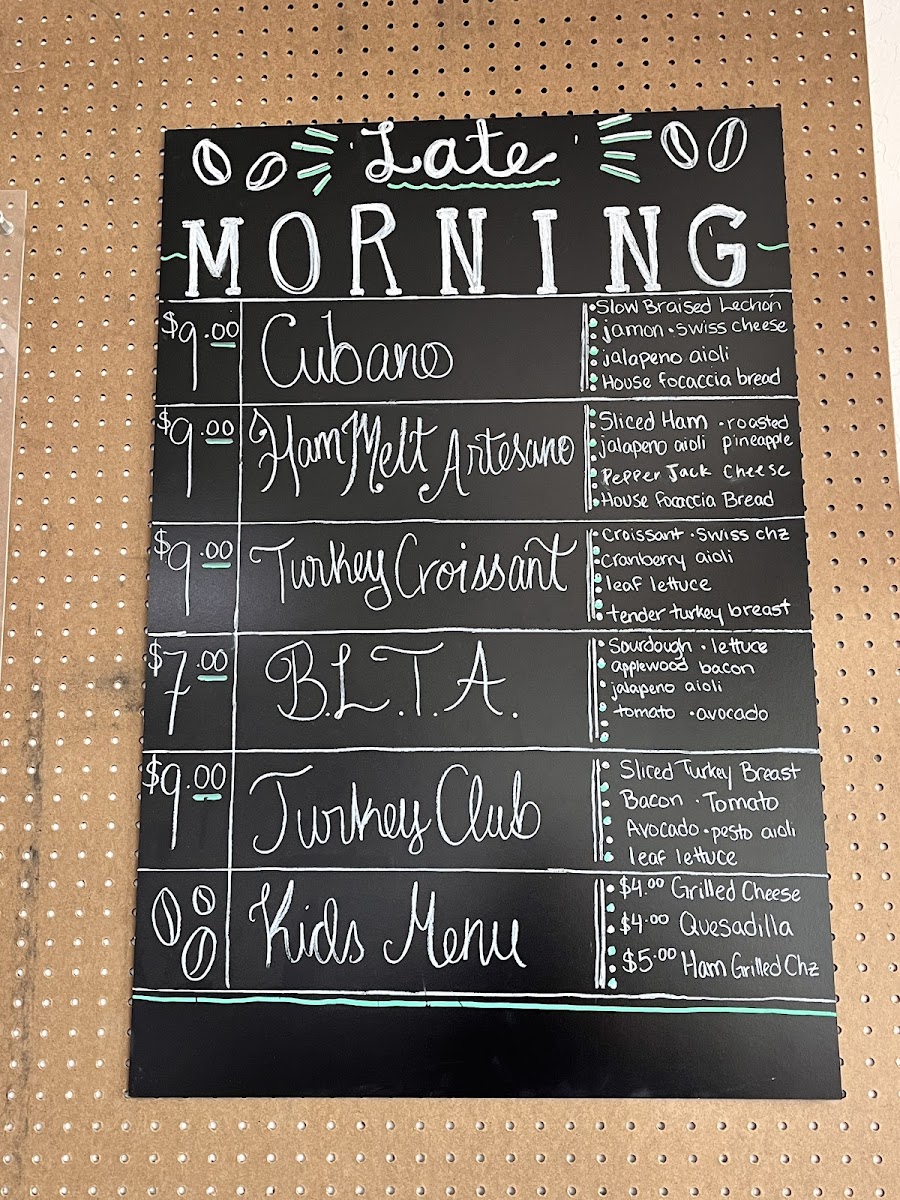 Late
MORNING
$9.00 Cubano
• Slow Braised Lechon
• jamon • swiss cheese
• jalapeno aioli
• House focaccia bread
$9.00 Ham Melt Artesano
• Sliced Ham • roasted
jalapeno aioli pineapple
• Pepper Jack cheese
• House focaccia Bread
$9.00 Turkey Croissant
• Croissant • Swiss chz
• cranberry aioli
• leaf lettuce
• tender turkey breast
$7.00 B.L.T.A.
• Sourdough • lettuce
• applewood bacon
jalapeno aioli
• tomato • avocado
$9.00 Turkey Club
• Sliced Turkey Breast
• Bacon • Tomato
• Avocado • pesto aioli
• leaf lettuce
Kids Menu
• $4.00 Grilled Cheese
• $4.00 Quesadilla
• $5.00 Ham Grilled Chz